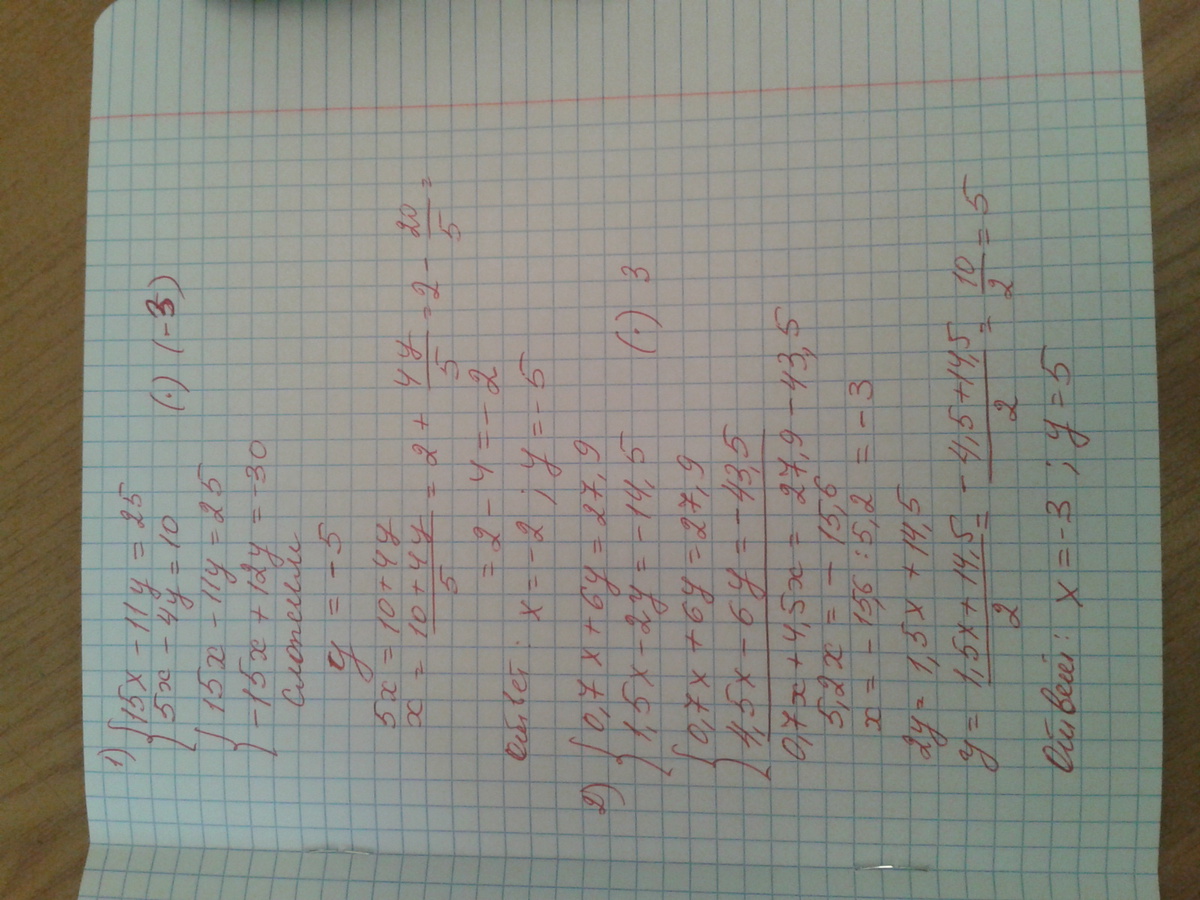 1) {15x - 11y = 25
5x - 4y = 10 (·) (-3)
{15x - 11y = 25
-15x + 12y = -30
Сложением
y = -5
5x = 10 + 4y
x = (10+4y)/5 = 2 + 4y/5 = 2 - 20/5 =
= 2 - 4 = -2
Ответ: x = -2 ; y = -5
2) {0,7x + 6y = 27,9
1,5x - 2y = -14,5 (·) 3
{0,7x + 6y = 27,9
4,5x - 6y = -43,5
0,7x + 4,5x = 27,9 - 43,5
5,2x = - 15,6
x = - 15,6 : 5,2 = -3
2y = 1,5x + 14,5
y = (1,5x + 14,5)/2 = (-4,5+14,5)/2 = 10/2 = 5
Ответ: x = -3 ; y = 5